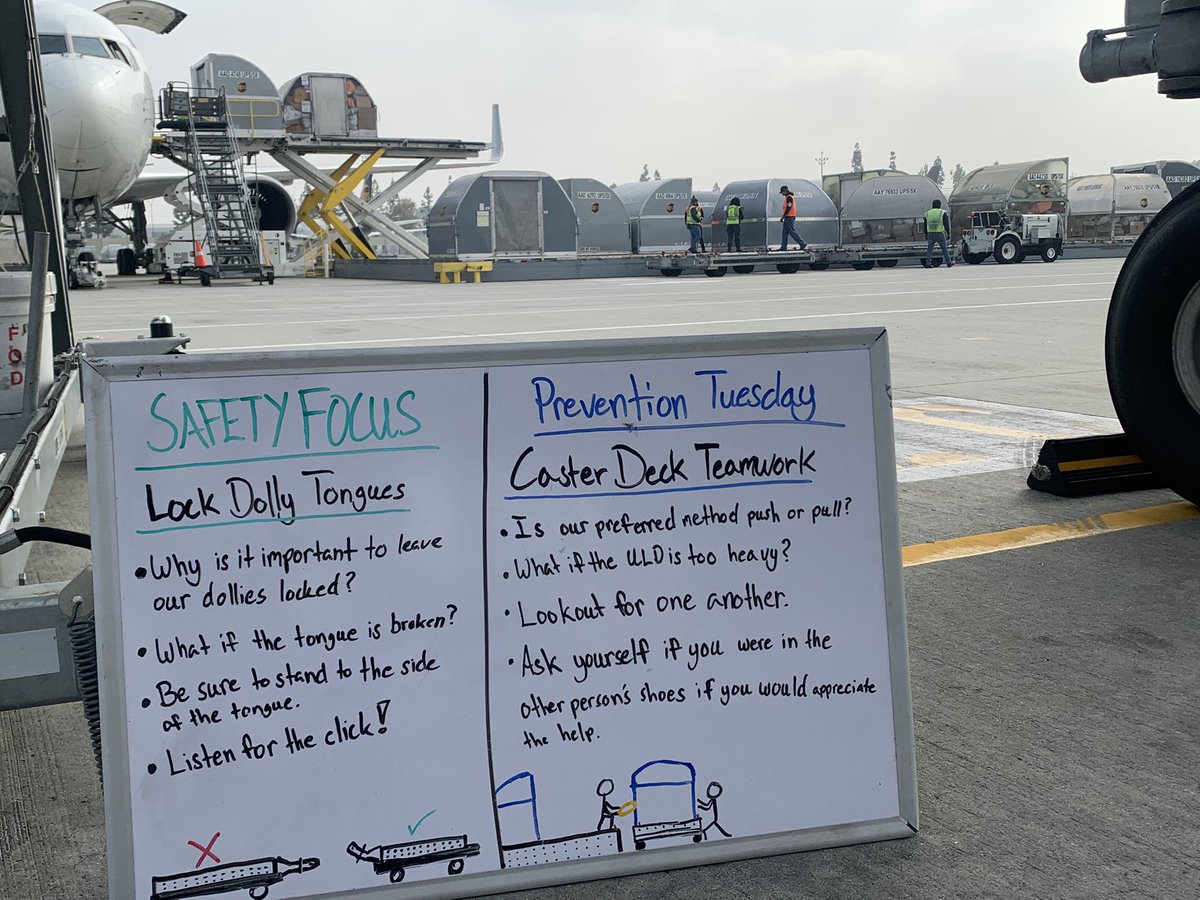 SAFETY FOCUS
Lock Dolly Tongues
• Why is it important to leave
our dollies locked?
• What if the tongue is broken?
• Be sure to stand to the side
of the tongue.
• Listen for the click!
Prevention Tuesday
Caster Deck Teamwork
• Is our preferred nethod push or pull?
• What if the ULD is too heavy?
• Lookout for one another.
• Ask yourself if you were in the
other person's shoes if you would appreciate
the help.
FOD